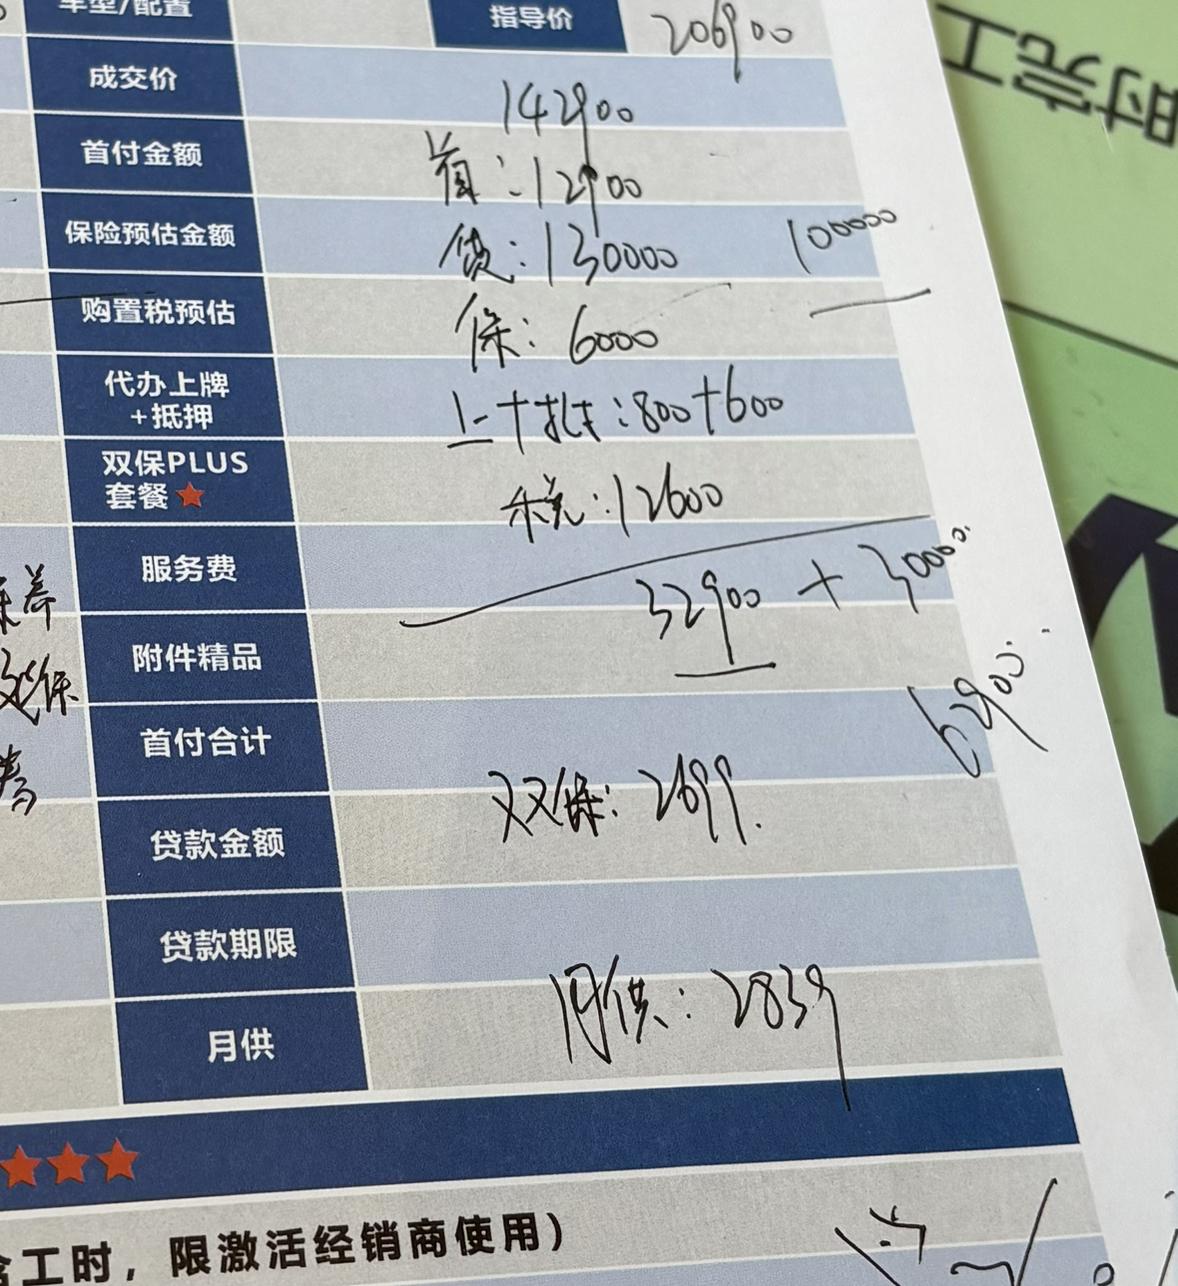 车型/配置 指导价 206900
成交价 142900
首付金额 首:12900
保险预估金额 贷:130000 100000
购置税预估 保:6000
代办上牌
+抵押 上+抵:800+600
双保PLUS
套餐 税:12600
服务费 32900 + 30000.
保养
附件精品
双保
62900
首付合计
双保:2699.
贷款金额
贷款期限
月供 月供:2839
工时,限激活经销商使用)
时完工